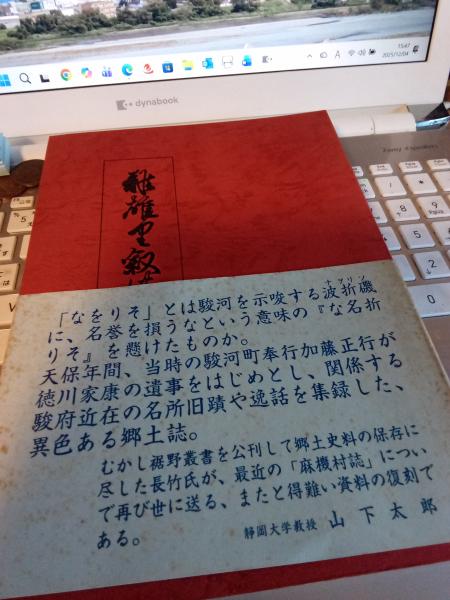 15:47
2025/12/04
A
dynabook
「なをりそ」とは駿河を示唆する波折磯
ナヲリソ
に、名誉を損うなという意味の『な名折
りそ』を懸けたものか。
天保年間、当時の駿河町奉行加藤正行が
徳川家康の遺事をはじめとし、関係する
駿府近在の名所旧蹟や逸話を集録した、
異色ある郷土誌。
むかし裾野叢書を公刊して郷土史料の保存に
尽した長竹氏が、最近の「麻機村誌」につい
で再び世に送る、またと得難い資料の復刻で
ある。
静岡大学教授 山下太郎